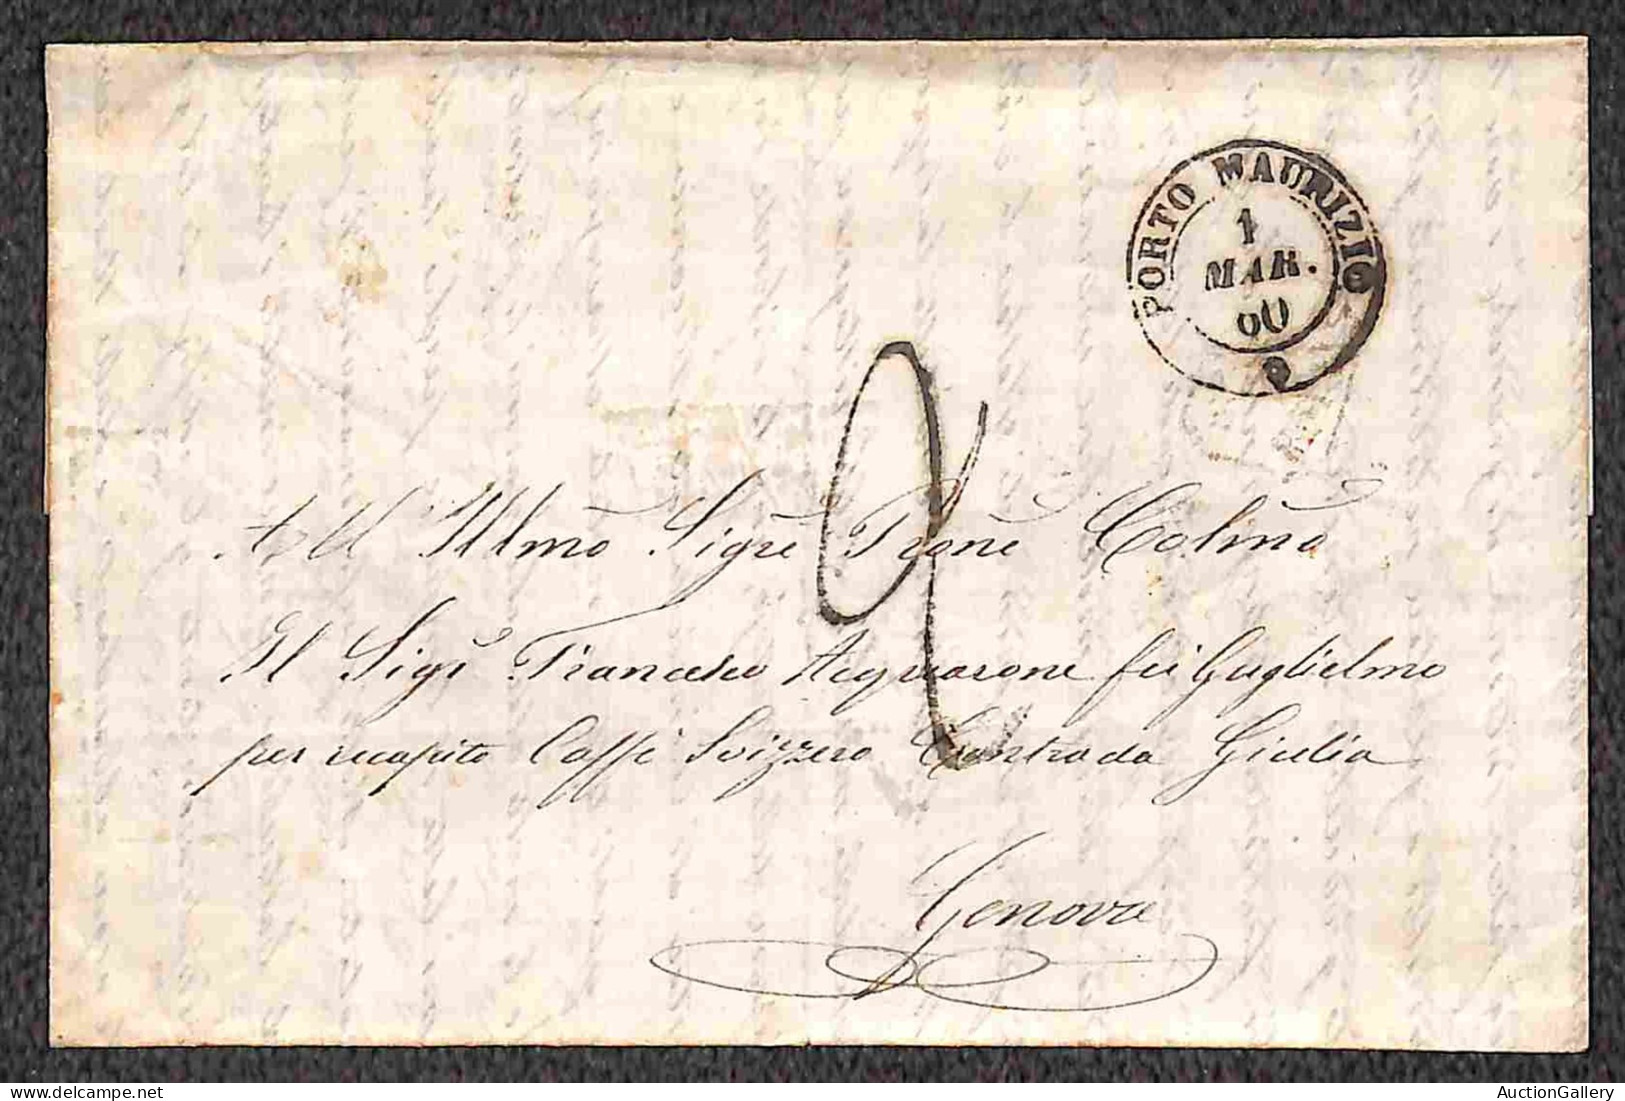 PORTO MAURIZIO
1
MAR.
60
2
All' Illmo Sigre Prone Colmo
Il Sigr Francesco Acquarone fu Guglielmo
per recapito Caffè Svizzero Contrada Giulia
Genova
AuctionGallery